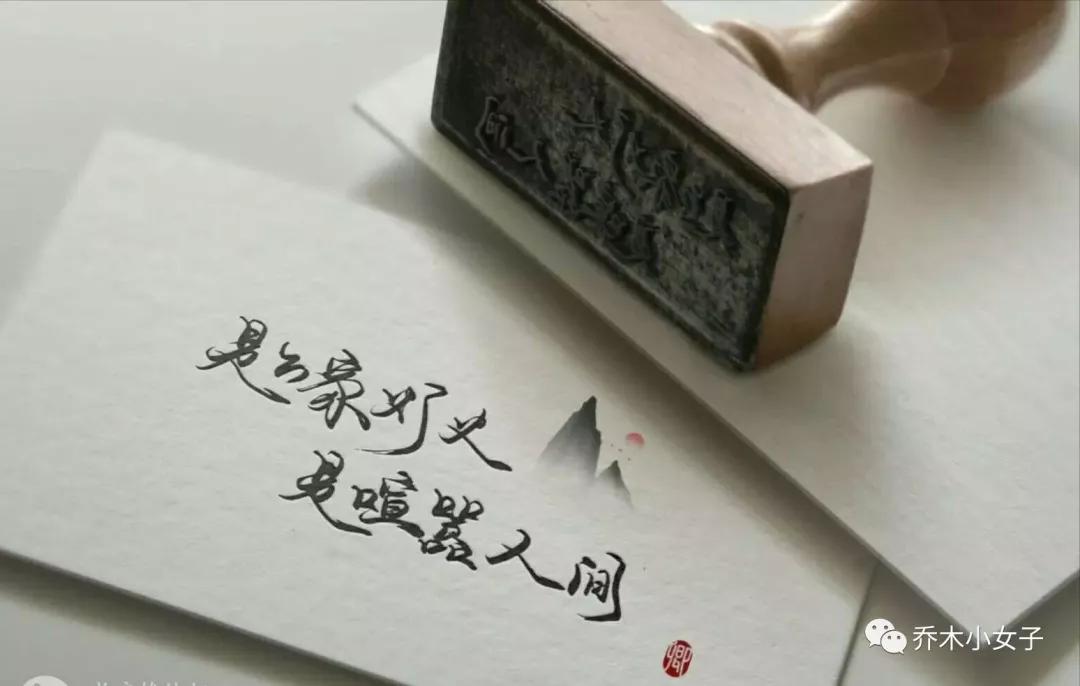 是万家灯火
是喧嚣人间
卿
乔木小女子